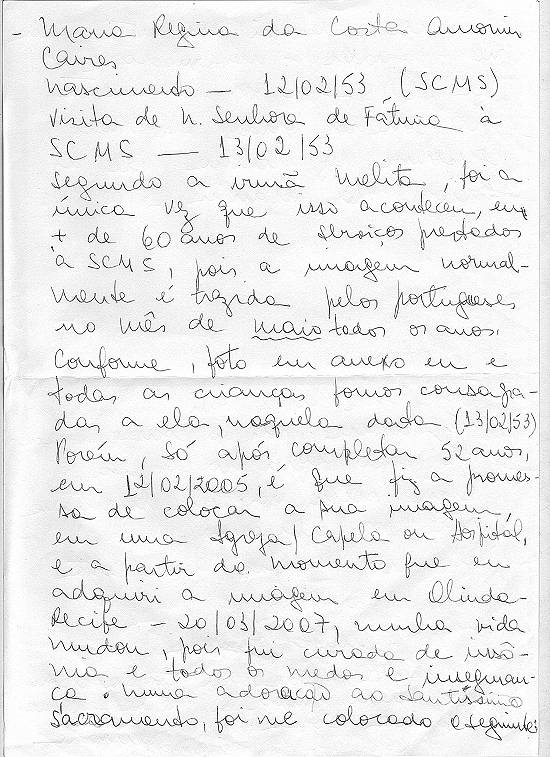 - Maria Regina da Costa Amorim
Caires
nascimento - 12/02/53 (SCMS)
visita de N. Senhora de Fátima à
SCMS - 13/02/53
Segundo a irmã Melita, foi a
única vez que isso aconteceu, em
+ de 60 anos de serviços prestados
à SCMS, pois a imagem normal-
mente é trazida pelos portugueses
no mês de maio todos os anos.
Conforme, foto em anexo eu e
todas as crianças fomos consagra-
das a ela, naquela data (13/02/53)
Porém, só após completar 52 anos,
em 12/02/2005, é que fiz a promes-
sa de colocar a sua imagem,
em uma Igreja/Capela ou Hospital,
e a partir do momento que eu
adquiri a imagem em Olinda-
Recife - 20/03/2007, minha vida
mudou, pois fui curada de insô-
nia e todos os medos e inseguran-
ça. Numa adoração ao Santíssimo
Sacramento, foi me colocado o seguinte: